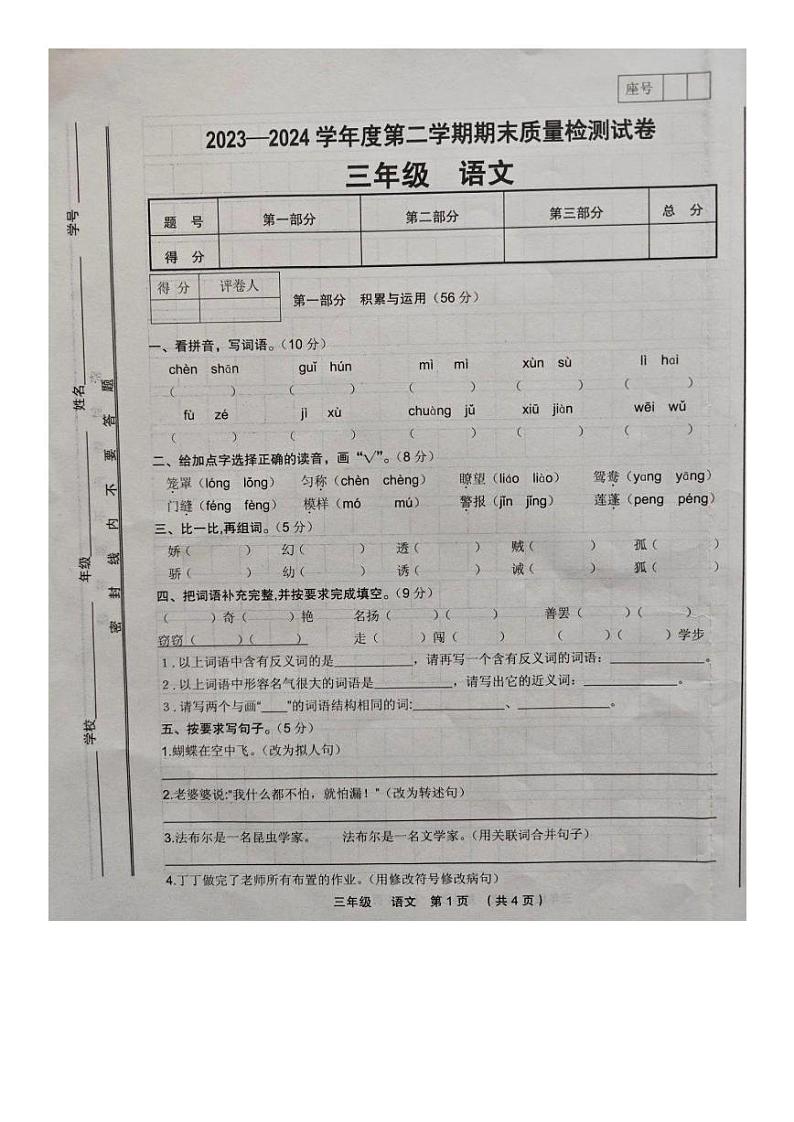 座号
2023—2024 学年度第二学期期末质量检测试卷
三年级 语文
题 号 第一部分 第二部分 第三部分 总 分
得 分
得 分 评卷人
第一部分 积累与运用（56 分）
一、看拼音，写词语。（10 分）
chèn shān guǐ hún mì mì xùn sù lì hai
（ ） （ ） （ ） （ ） （ ）
fù zé jì xù chuàng jǔ xiū jiàn wēi wǔ
（ ） （ ） （ ） （ ） （ ）
二、给加点字选择正确的读音，画“√”。（8 分）
笼罩（lóng lǒng） 匀称（chèn chèng） 瞭望（liáo liào） 鸳鸯（yang yāng）
门缝（féng fèng） 模样（mó mú） 警报（jǐn jǐng） 莲蓬（peng péng）
三、比一比,再组词。（5 分）
娇（ ） 幻（ ） 透（ ） 贼（ ） 孤（ ）
骄（ ） 幼（ ） 诱（ ） 诫（ ） 狐（ ）
四、把词语补充完整,并按要求完成填空。（9 分）
（ ）奇（ ）艳 名扬（ ）（ ） 善罢（ ）（ ）
窃窃（ ）（ ） 走（ ）闯（ ） （ ）（ ）学步
1.以上词语中含有反义词的是___________，请再写一个含有反义词的词语：_____________。
2.以上词语中形容名气很大的词语是___________，请写出它的近义词：_____________。
3.请写两个与画“____”的词语结构相同的词:_____________、_____________。
五、按要求写句子。（5 分）
1.蝴蝶在空中飞。（改为拟人句）
2.老婆婆说:"我什么都不怕，就怕漏！"（改为转述句）
3.法布尔是一名昆虫学家。 法布尔是一名文学家。（用关联词合并句子）
4.丁丁做完了老师所有布置的作业。（用修改符号修改病句）
三年级 语文 第 1 页 （共 4 页）
学校 年级 姓名 学号
密 封 线 内 不 要 答 题